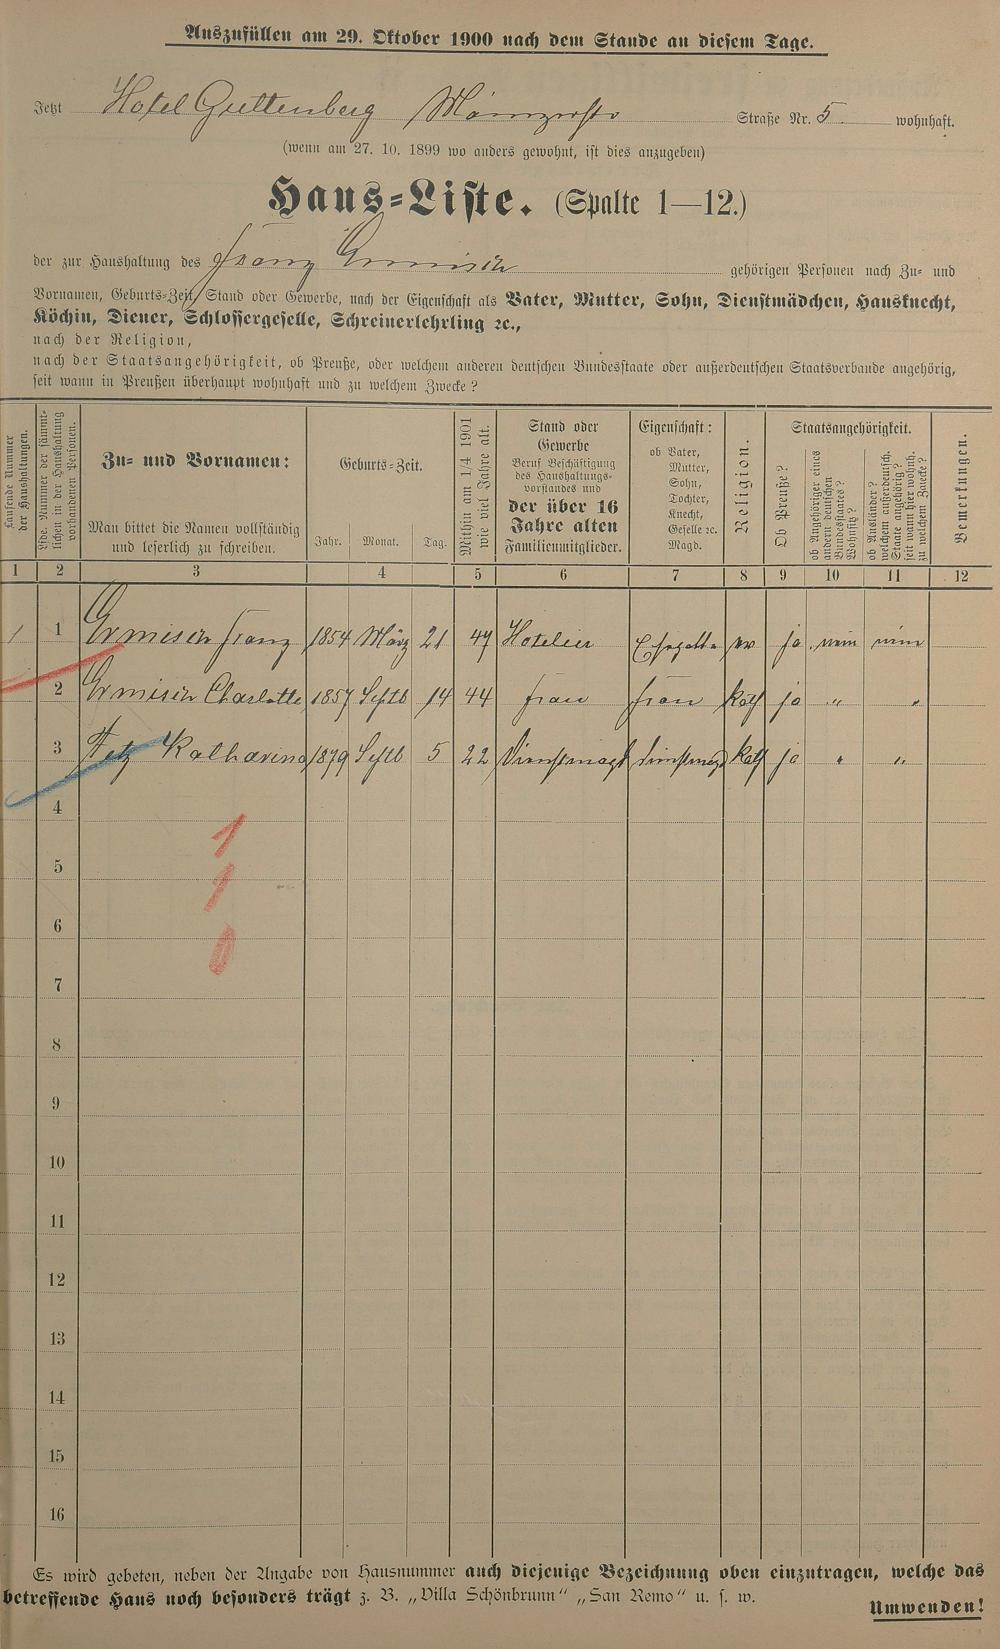 Auszufüllen am 29. Oktober 1900 nach dem Stande an diesem Tage.
Jetzt Hotel Guttenberg Mainzerstr Straße Nr. 5 wohnhaft.
(wenn am 27. 10. 1899 wo anders gewohnt, ist dies anzugeben)
Haus-Liste. (Spalte 1—12.)
der zur Haushaltung des Franz Ermisch gehörigen Personen nach Zu- und
Vornamen, Geburts-Zeit, Stand oder Gewerbe, nach der Eigenschaft als Vater, Mutter, Sohn, Dienstmädchen, Hausknecht,
Köchin, Diener, Schlossergeselle, Schreinerlehrling ꝛc.,
nach der Religion,
nach der Staatsangehörigkeit, ob Preuße, oder welchem anderen deutschen Bundesstaate oder außerdeutschen Staatsverbande angehörig,
seit wann in Preußen überhaupt wohnhaft und zu welchem Zwecke?
Laufende Nummer
der Haushaltungen.
Lfde. Nummer der sämmt-
lichen in der Haushaltung
vorhandenen Personen.
Zu- und Vornamen:
Man bittet die Namen vollständig
und leserlich zu schreiben.
Geburts-Zeit.
Jahr. Monat. Tag.
Mithin am 1/4 1901
wie viel Jahre alt.
Stand oder
Gewerbe
Beruf Beschäftigung
des Haushaltungs-
vorstandes und
der über 16
Jahre alten
Familienmitglieder.
Eigenschaft:
ob Vater,
Mutter,
Sohn,
Tochter,
Knecht,
Geselle ꝛc.
Magd.
Religion.
Staatsangehörigkeit.
Ob Preuße?
ob Angehöriger eines
andern deutschen
Bundesstaates?
Wohnsitz?
ob Ausländer?
welchem außerdeutsch.
Staate angehörig?
seit wann hier wohnh.
zu welchem Zwecke?
Bemerkungen.
1 2 3 4 5 6 7 8 9 10 11 12
1 1 Ermisch Franz 1854 März 21 47 Hotelier Ehegatte ev ja nein nein
2 Ermisch Charlotte 1857 Septb 14 44 Frau Frau kath ja " "
3 Fetz Katharina 1879 Septb 5 22 Dienstmagd Dienstmagd kath ja " "
4
1
5
1
6
0
7
8
9
10
11
12
13
14
15
16
Es wird gebeten, neben der Angabe von Hausnummer auch diejenige Bezeichnung oben einzutragen, welche das
betreffende Haus noch besonders trägt z. B. „Villa Schönbrunn“ „San Remo“ u. s. w.
Umwenden!